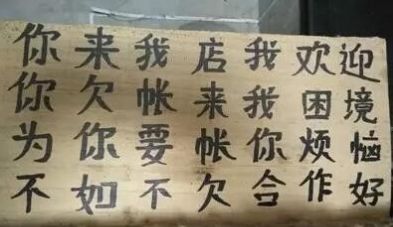 你来我店我欢迎
你欠帐来我困境
为你要帐你烦恼
不如不欠合作好